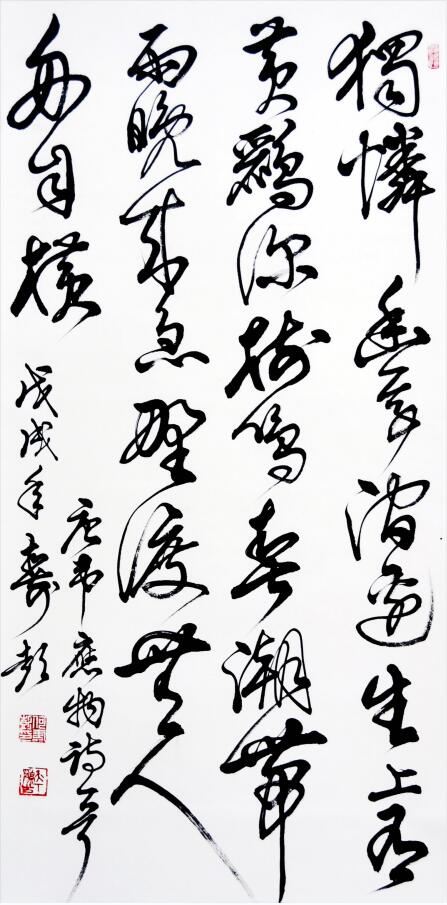 獨憐幽草澗邊生上有
黃鸝深樹鳴春潮帶
雨晚來急野渡無人
舟自橫
唐韋應物詩一首
戊戌年壽彭